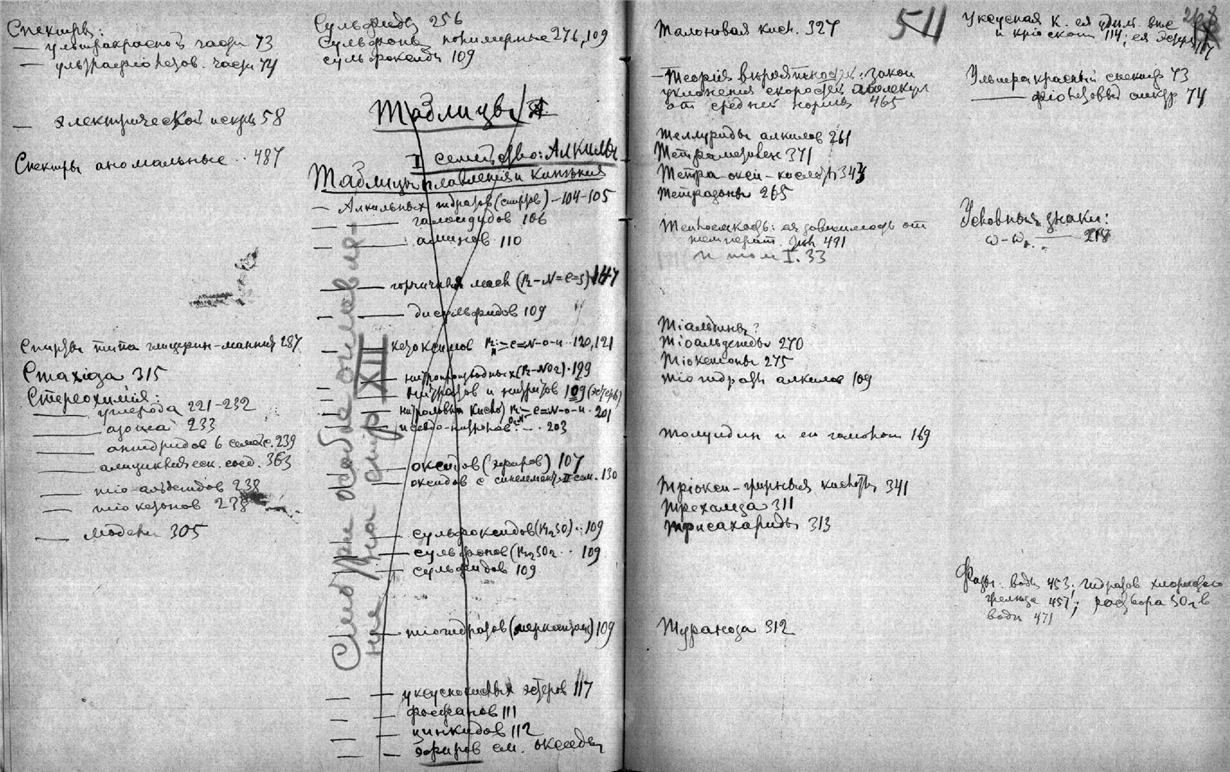 Спектры:
— ультракрасной части 73
— ультрафиолетов. части 74
— электрической искры 58
Спектры аномальные .. 487
Спирты типа глицерин-маннит 287
Стахиоза 315
Стереохимия:
углерода 221-232
азота 233
ангидридов 6 семейс. 239
алициклическ. соед. 363
тио альдегидов 238
тио кетонов 238
модели 305
Сульфиды 256
Сульфоны полимерные 276, 109
сульфоксиды 109
Таблицы
I семейство: Алкилы
Таблицы плавления и кипения
— Алкильных гидратов (спиртов) — 104-105
галоидудов 106
аминов 110
горчичных масел (R-N=C=S) 147
дисульфидов 109
кетоксимов C=N-O-H .. 120, 121
нитропроизводных (R-NO2) . 199
нитратов и нитритов 109 (эстеры)
нитроловых кислот C=N-O-H . 201
псевдо-нитролов .. 203
оксидов (эфиров) 107
оксидов с синелемент. II сем. 130
сульфоксидов (R2SO) .. 109
сульфонов (R2SO2 .. 109
сульфидов 109
тиогидратов (меркаптан) 109
уксуснокислых эстеров 117
фосфанов 111
цинкидов 112
Эфиров см. оксиды
Смотри особое оглавле-
ние на стр XII
511
Малоновая кисл. 327
— Теория вероятност.: закон
уклонения скоростей молекул
от средней нормы 465
Теллуриды алкилов 261
Тетрамезитен 371
Тетра окси-кислоты 343
Тетразоны 265
Теплоемкость: ея зависимость от
температ. 491
и том I. 33
Тиальдины?
Тиоальдегиды 270
Тиокетоны 275
Тио гидраты алкилов 109
Толуидин и его гомологи 169
Триокси-глутаровая кислоты 341
Трегалоза 311
Трисахариды 313
Тураноза 312
Уксусная К. ея
и криоскоп 114; ея эстеры 117
Ультракрасный спектр 73
— фиолетовый спектр 74
Условные знаки:
218
Фазы воды 453; гидратов хлорного
железа 457; раствора SO2 в
воде 471